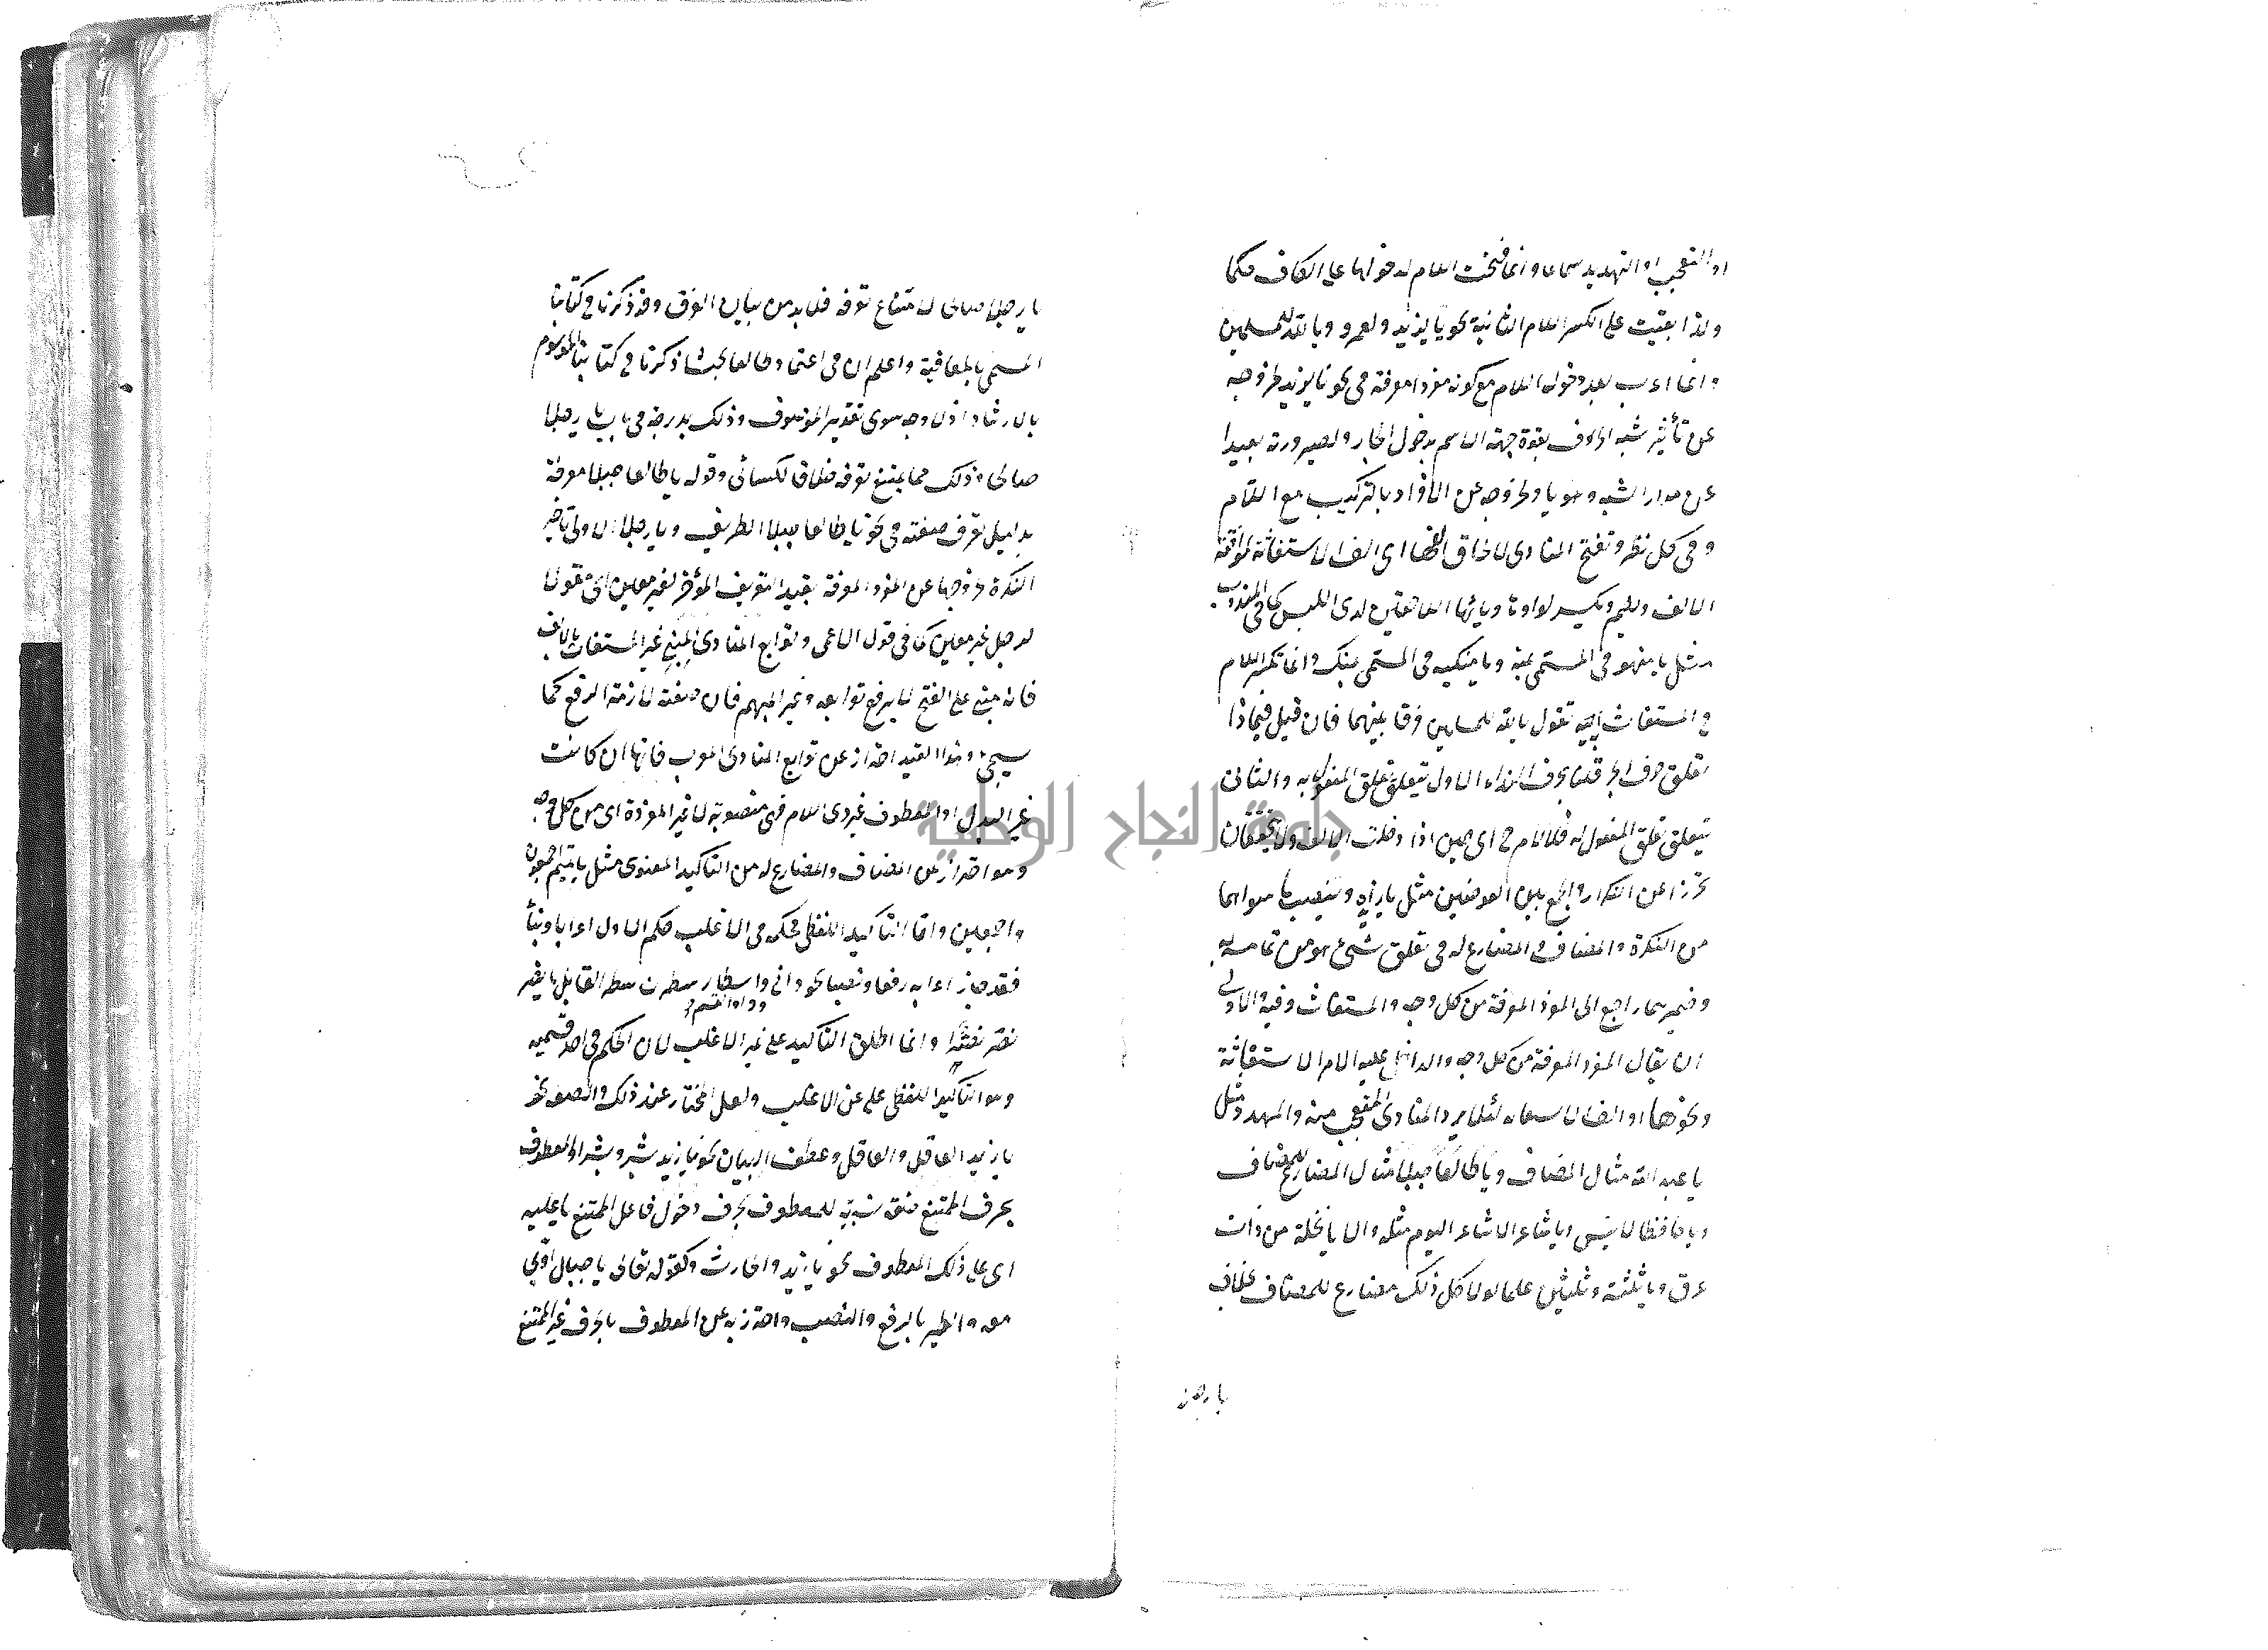 او التعجب او التهديد سماعا وانما فتحت اللام لدخولها على الكاف حكما
ولذا بقيت على الكسر اللام الثانية نحو يا لزيد ولعمرو ويا لله للمسلمين
وانما اعرب بعد دخول اللام مع كونه مفردا معرفة في نحو يا لزيد لخروجه
عن تأثير شبه الحرف بقوة جهة الاسم بدخول الجار ولصيرورته بعيدا
عن مدار الشبه وهو يا ولخروجه عن الافراد بالتركيب مع اللام
وفي كل نظر وتفتح المنادى لالحاق الفها اى الف الاستغاثة لموافقة
الالف وللميم ويكسر لواوها ويائها اللاحقتين لدى اللبس كما في المندوب
مثل يا منهو في المسمى بمنه ويا منكيه في المسمى بمنك وانما تكسر اللام
في المستغاث اليه تقول يا لله للمسلمين فرقا بينهما فان قيل فبماذا
تعلق حرف الجر قلنا بحرف النداء الاول يتعلق تعلق المفعول به والثانى
يتعلق تعلق المفعول له فلا لام ح اى حين اذا دخلت الالف ولا يجتمعان
تحرزا عن التكرار والجمع بين العوضين مثل يا زيداه وينصب ما سواهما
من النكرة والمضاف والمضارع له في تعلق شىء هو من تمامه به
وضمير هما راجع الى المفرد المعرفة من كل وجه والمستغاث وفيه والاولى
ان يقال المفرد المعرفة من كل وجه والداخل عليه لام الاستغاثة
ونحوها او الف الاستغاثة لئلا يرد المنادى المتعجب منه والمهدد مثل
يا عبد الله مثال المضاف ويا طالعا جبلا مثال المضارع للمضاف
ويا حافظا لا ينس ويا شاعرا لا شاعر اليوم مثله والا يا نخلة من ذات
عرق ويا ثلثة وثلثين علما لولا كل ذلك مضارع للمضاف بخلاف
يا رجلا
يا رجلا صالحا لامتناع تعرفه فلا بد من بيان الفرق وقد ذكرنا في كتابنا
المسمى بالمعافية واعلم ان في اعتماد طالعا بحثا ذكرنا في كتابنا الموسوم
بالارشاد اذ لا وجه سوى تقدير الموصوف وذلك يدرجه في باب يا رجلا
صالحا وذلك مما يمتنع تعرفه خلافا للكسائى وقوله يا طالعا جبلا معرفة
بدليل تعرف صفته في نحو يا طالعا جبلا الظريف ويا رجلا الاولى تأخير
النكرة لخروجها عن المفرد المعرفة بقيد التعريف المؤخر لغير معين اى مقولا
لرجل غير معين كما في قول الاعمى وتوابع المنادى المبنى غير المستغاث بالالف
فانه مبنى على الفتح لا يرفع توابعه وغير المبهم فان صفته لازمة الرفع كما
سيجىء وهذا القيد احتراز عن توابع المنادى المعرب فانها ان كانت
غير البدل او المعطوف غير ذى اللام فهى منصوبة لا غير المفردة اى من كل وجه
وهو احتراز عن المضاف والمضارع له من التأكيد المعنوى مثل يا تيم اجمعون
واجمعين واما التأكيد اللفظى فحكمه في الاغلب حكم الاول اعرابا وبناء
فقد جاز اعرابه رفعا ونصبا نحو وانى واسطار سطرن سطرا لقائل يا نصر
وواو القسم
نصر نصرا وانما اطلق التأكيد على غير الاغلب لان الحكم في احد قسميه
وهو التأكيد اللفظى على غير الاغلب ولعل المختار عند ذلك والصفة نحو
يا زيد العاقل والعاقل وعطف البيان نحو يا زيد بشر وبشرا والمعطوف
بحرف الممتنع صفة سببية للمعطوف بحرف دخول فاعل الممتنع يا عليه
اى على ذلك المعطوف نحو يا زيد والحارث وكقوله تعالى يا جبال اوبى
معه والطير بالرفع والنصب واحترز به عن المعطوف بالحرف غير الممتنع
جامعة النجاح الوطنية